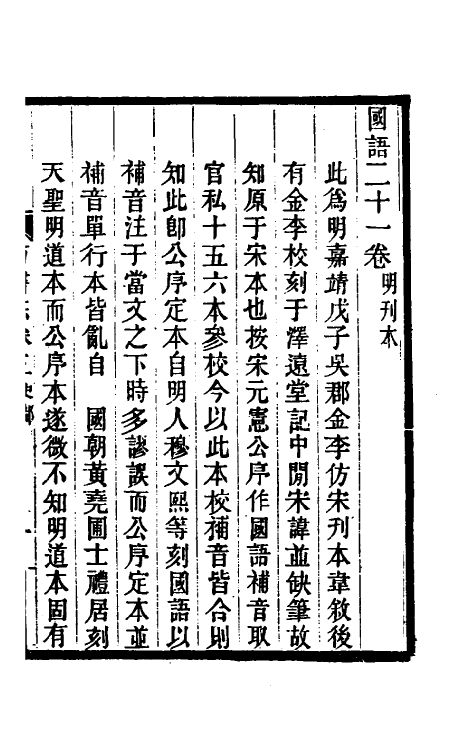 國語二十一卷 明刊本
此爲明嘉靖戊子吳郡金李仿宋刊本韋敘後
有金李校刻于澤遠堂記中閒宋諱並缺筆故
知原于宋本也按宋元憲公序作國語補音取
官私十五六本參校今以此本校補音皆合則
知此卽公序定本自明人穆文熙等刻國語以
補音注于當文之下時多謬誤而公序定本並
補音單行本皆亂自 國朝黃堯圃士禮居刻
天聖明道本而公序本遂微不知明道本固有